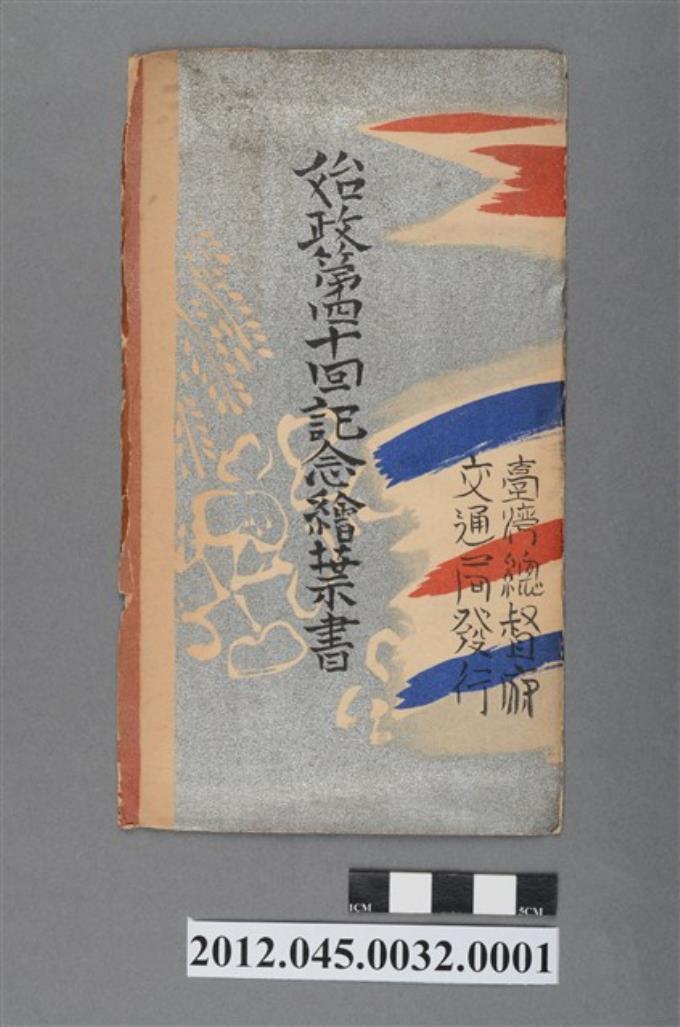 始政第四十回記念繪葉書
臺灣總督府
交通局發行
1CM
5CM
2012.045.0032.0001